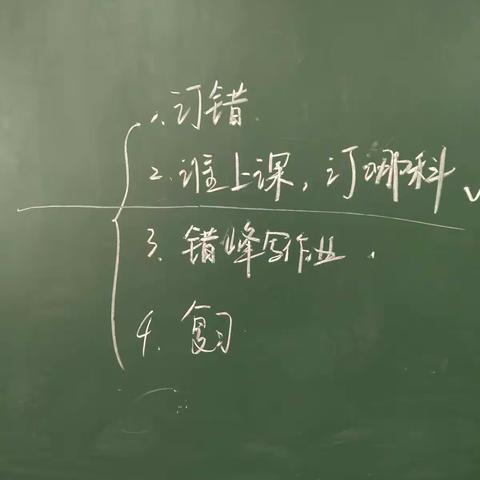 1、订错.
2.谁上课，订哪科
3、错峰写作业.
4.复习